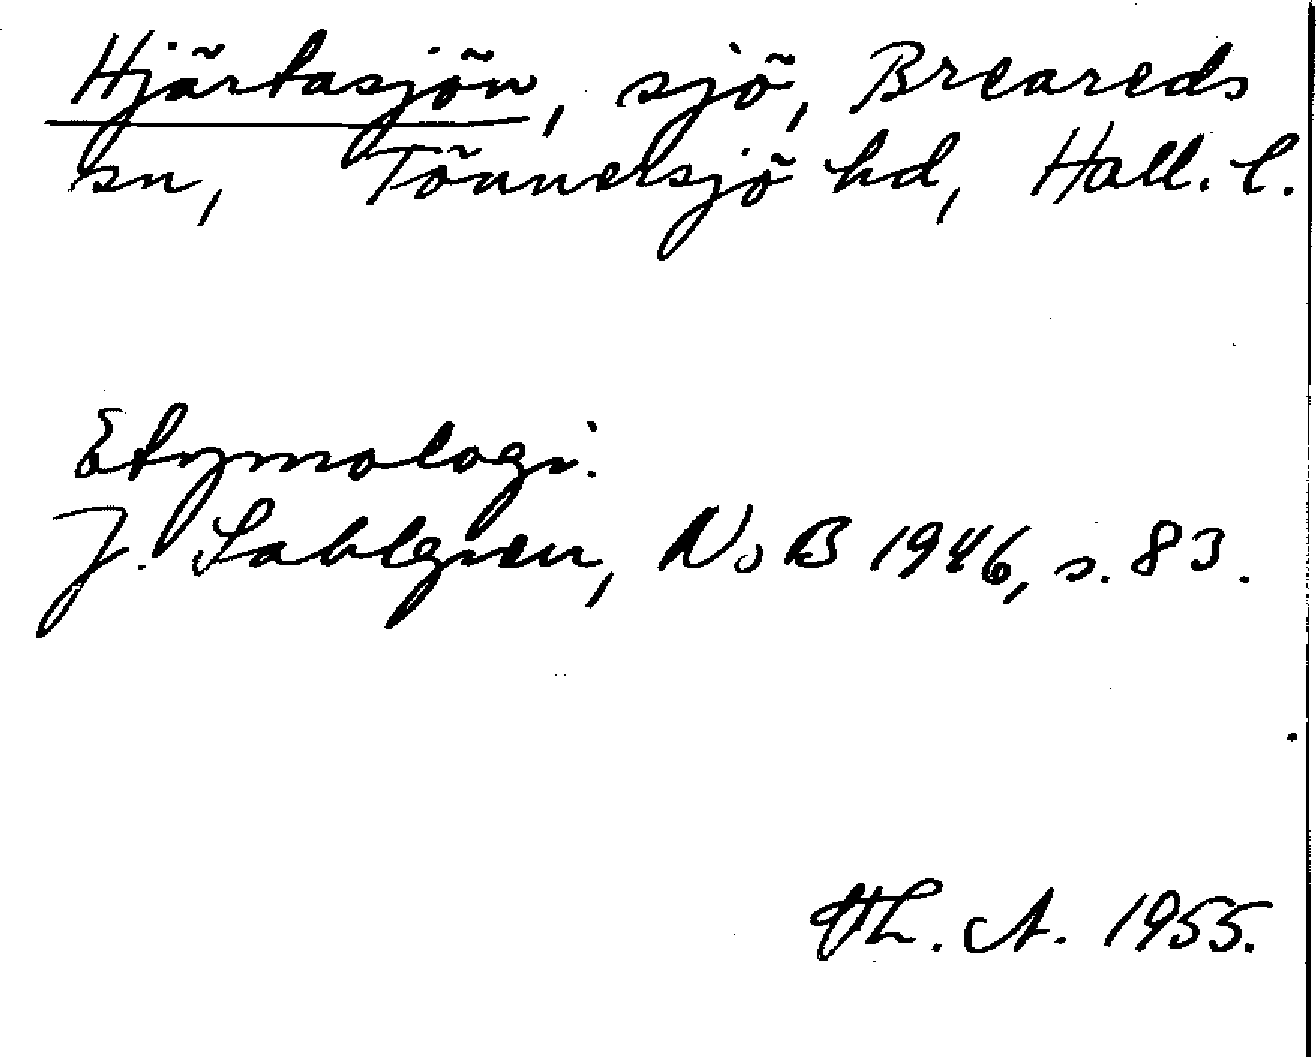 Hjärtasjön, sjö, Breareds
sn, Tönnersjö hd, Hall. l.
Etymologi.
J. Sahlgren, NoB 1946, s. 83.
Th. A. 1955.